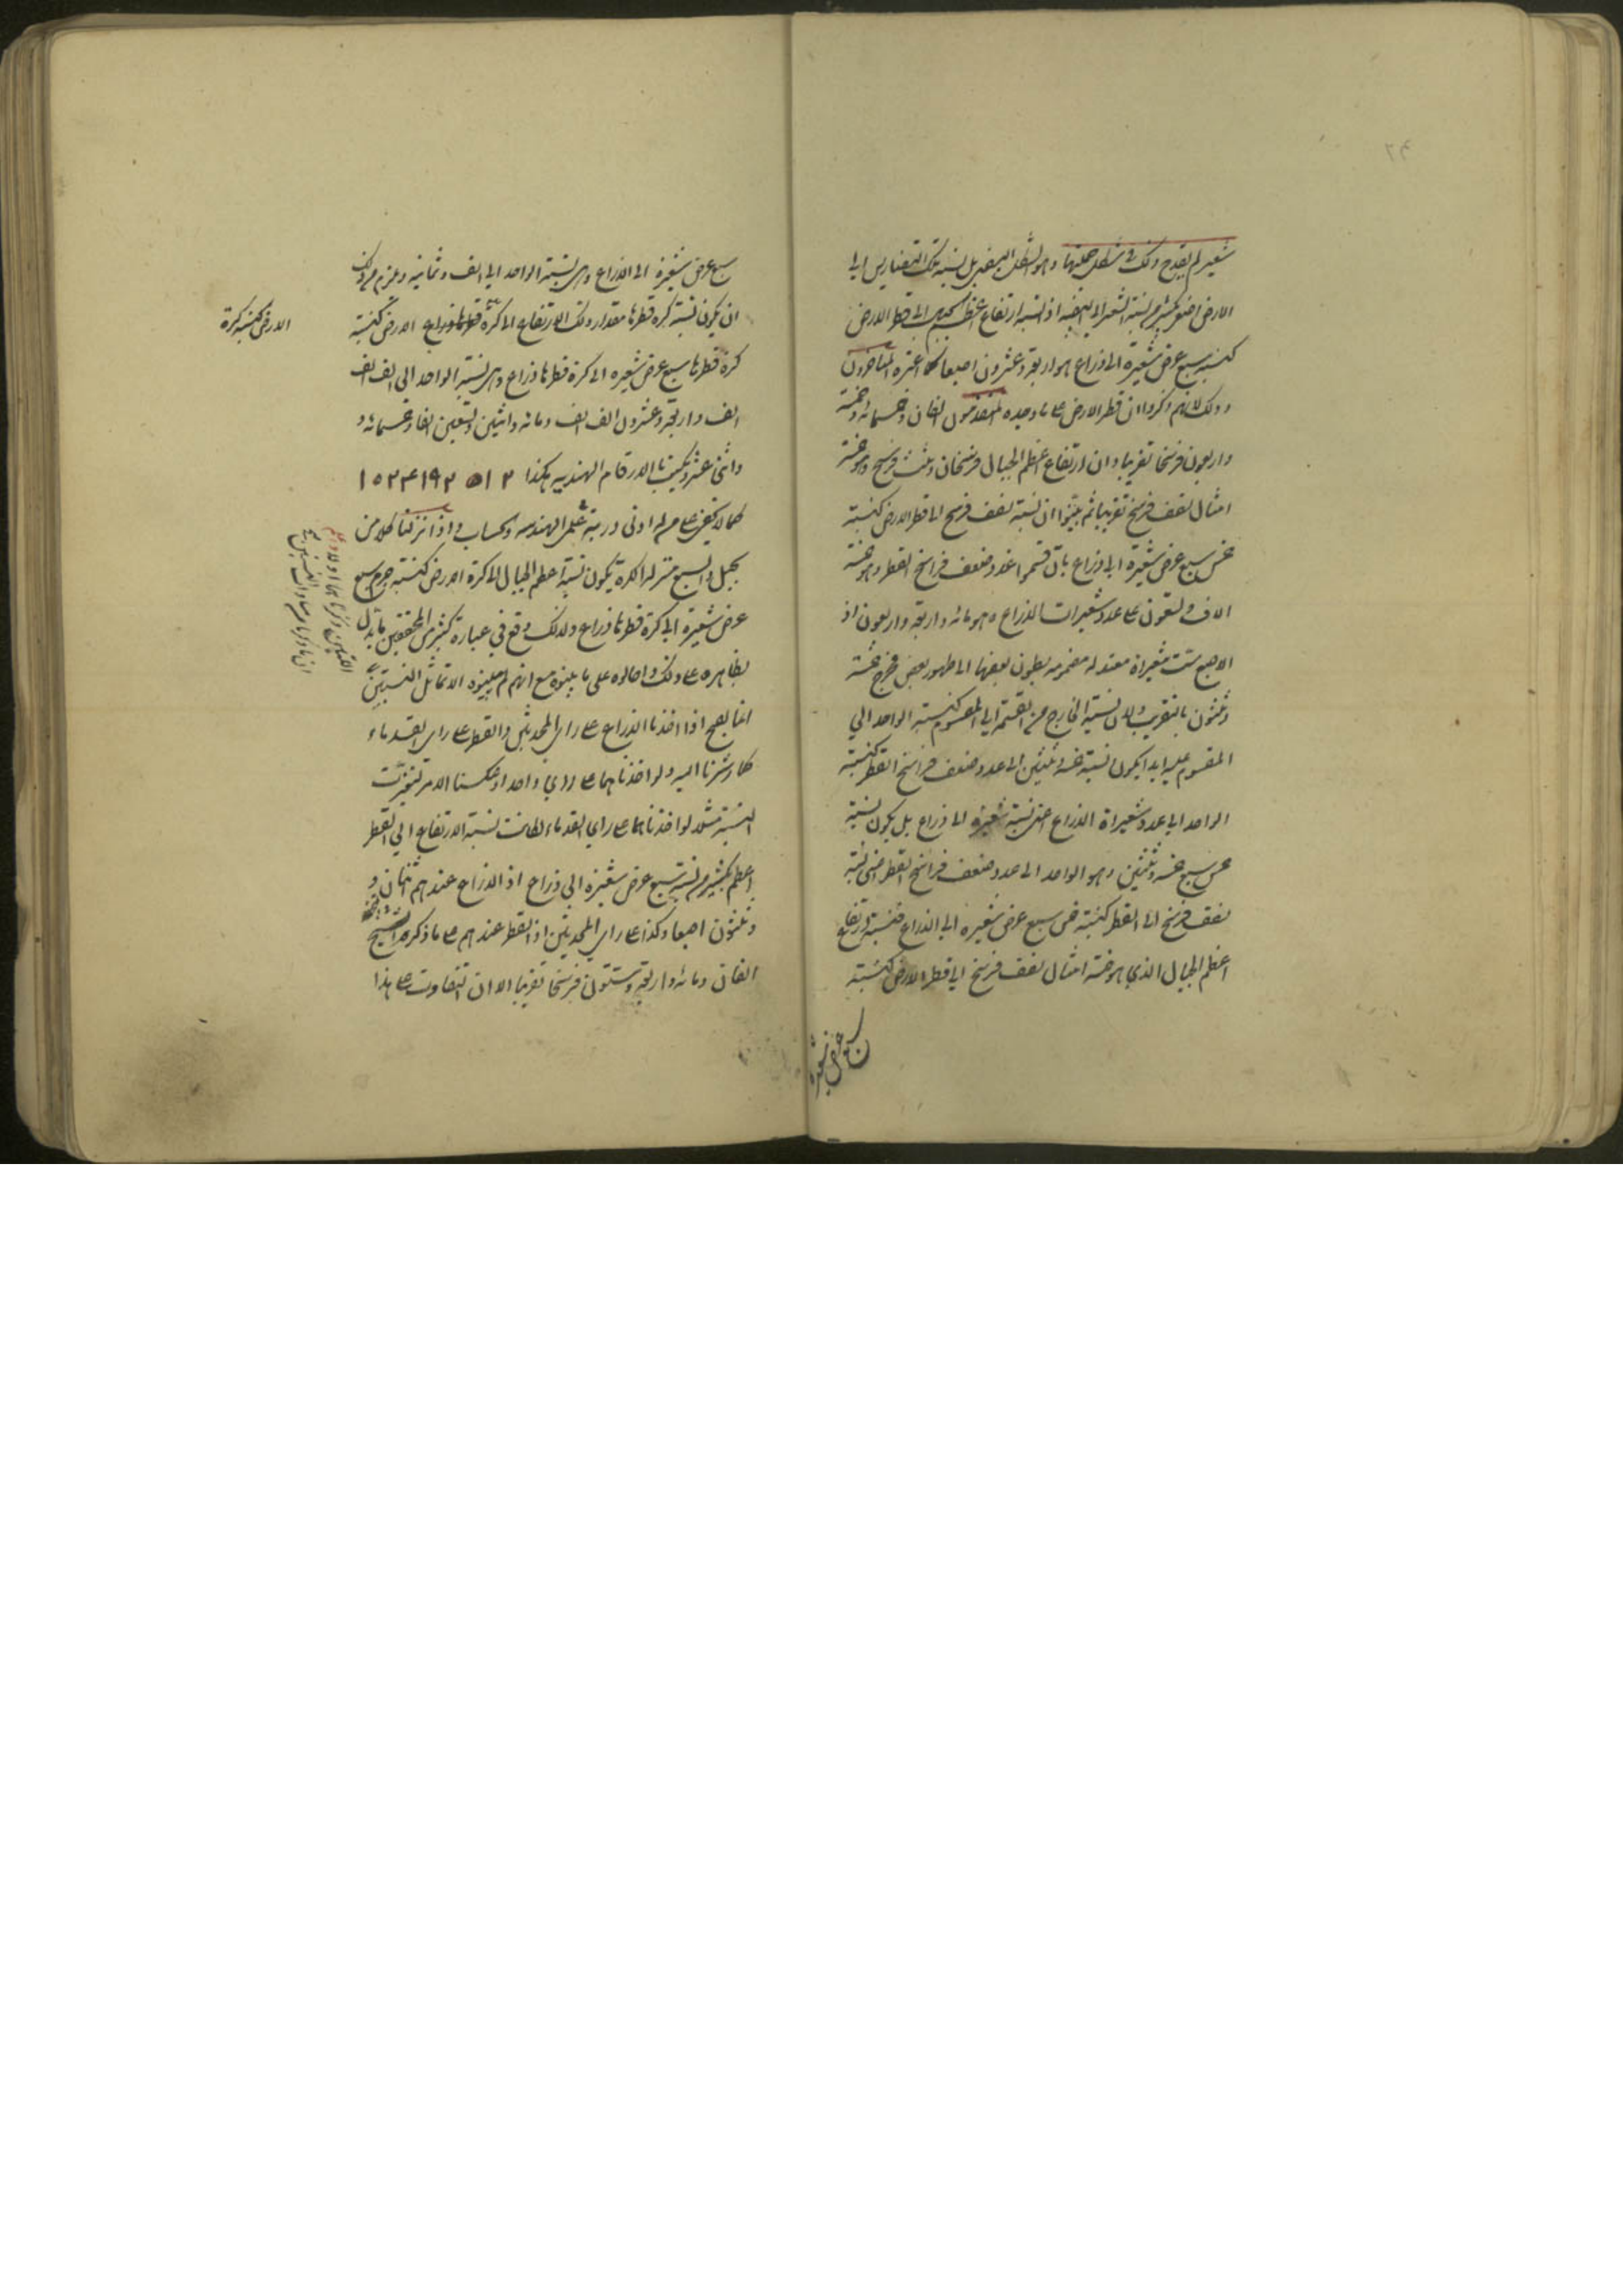 شعير لم يقدح ذلك فى شكل جملتها وهو الشكل البيضى بل نسبة تلك التضاريس الى
الارض اصغر بكثير من نسبة الشعير الى البيضه اذ نسبة ارتفاع اعظم الجبال الى قطر الارض
كنسبة سبع عرض شعيرة الى ذراع هو اربعة وعشرون اصبعا كما اعتبره المتاخرون
وذلك لانهم ذكروا ان قطر الارض على ما وجده المتقدمون الفان وخمسمائة وخمسة
واربعون فرسخا تقريبا وان ارتفاع اعظم الجبال فرسخان وثلث فرسخ وهو خمسة
امثال نصف فرسخ تقريبا ثم بينوا ان نسبة نصف فرسخ الى قطر الارض كنسبة
خمس سبع عرض شعيرة الى ذراع بان قسموا عدد ضعف فراسخ القطر وهو خمسة
الاف وتسعون على عدد شعيرات الذراع وهو مائه واربعة واربعون اذ
الاصبع ست شعيرات معتدلة مضمومة بطون بعضها الى ظهور بعض فخرج خمسة
وثلثون بالتقريب ولان نسبة الخارج من القسمة الى المقسوم كنسبة الواحد الى
المقسوم عليه ابدا يكون نسبة خمسة وثلثين الى عدد ضعف فراسخ القطر كنسبة
الواحد الى عدد شعيرات الذراع اعنى نسبة شعيرة الى ذراع بل يكون نسبة
خمس سبع خمسه وثلثين وهو الواحد الى عدد ضعف فراسخ القطر اعنى نسبة
نصف فرسخ الى القطر كنسبة خمس سبع عرض شعيرة الى الذراع فنسبة ارتفاع
اعظم الجبال الذى هو خمسة امثال نصف فرسخ الى قطر الارض كنسبة
سبع عرض شعيرة
سبع عرض شعيرة الى الذراع وهى نسبة الواحد الى الف وثمانية ويلزم من ذلك
ان يكون نسبة كرة قطرها مقدار ذلك الارتفاع الى كرة الارض كنسبة
الارض كنسبة كرة
كرة قطرها سبع عرض شعيرة الى كرة قطرها ذراع وهى نسبة الواحد الى الف الف
الف واربعة وعشرون الف الف ومائه واثنين وتسعين الفا وخمسمائة و
واثنى عشر ويكتب بالارقام الهندسيه هكذا ١٠٢٤١٩٢٥١٢
كما لا يخفى على من له ادنى دربة بعلمى الهندسه والحساب واذا نزلنا كلا من
الجبل والسبع منزلة الكرة يكون نسبة اعظم الجبال الى كرة الارض كنسبة جرم سبع
عرض شعيرة الى كرة قطرها ذراع ولذلك وقع فى عبارة كثير من المحققين ما يدل
بظاهره على ذلك واحالوه على ما بينوه مع انهم لم يبينوه الا تماثل النسبتين
انما يصح اذا اخذنا الذراع على راى المحدثين والقطر على راى القدماء
كما اشرنا اليه ولو اخذناهما على راى واحد او عكسنا الامر لتغيرت
النسبة مثلا لو اخذناهما على راى القدماء لكانت نسبة الارتفاع الى القطر
اعظم بكثير من نسبة سبع عرض شعيرة الى ذراع اذ الذراع عندهم اثنان و
وثلثون اصبعا وكذا على راى المحدثين اذ القطر عندهم على ما ذكره
الفان ومائة واربعة وستون فرسخا تقريبا الا ان التفاوت على هذا